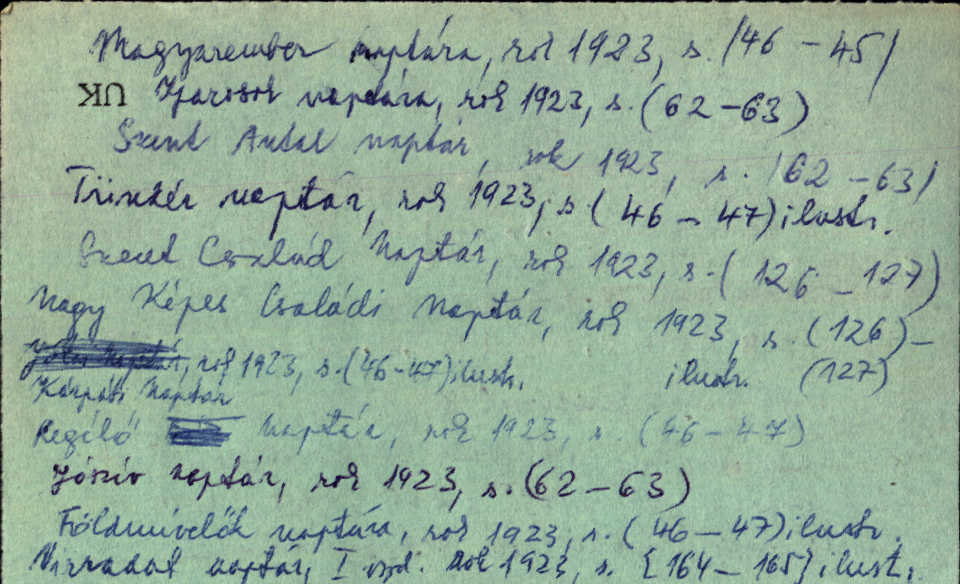 Magyarember naptára, rok 1923, s. /46 – 45/
UK Iparosok naptára, rok 1923, s. (62–63)
Szent Antal naptár, rok 1923, s. /62–63/
Tündér naptár, rok 1923, s. (46–47) ilustr.
Szent Család Naptár, rok 1923, s. (126–127)
Nagy Képes Családi Naptár, rok 1923, s. (126)–
rok 1923, s. (46–47) ilustr. ilustr. (127)
Kárpáti Naptár
Regélő Naptár, rok 1923, s. (46–47)
Jószív naptár, rok 1923, s. (62–63)
Földmívelők naptára, rok 1923, s. (46–47) ilustr.
Virradat naptár, I. vyd. rok 1923, s. [164–165] ilustr.